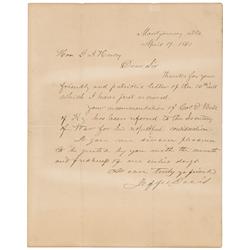 Montgomery, Ala
April 17, 1861
Hon. G. A. Henry
Dear Sir
Thanks for your
friendly and patriotic letter of the 10th inst
which I have just received.
Your recommendation of Col. 
of Ky. has been referred to the Secretary
of War for his respectful consideration.
It gives me sincere pleasure
to be greeted by you with the warmth
and freshness of our earlier days.
As ever truly yr friend
Jeffn Davis